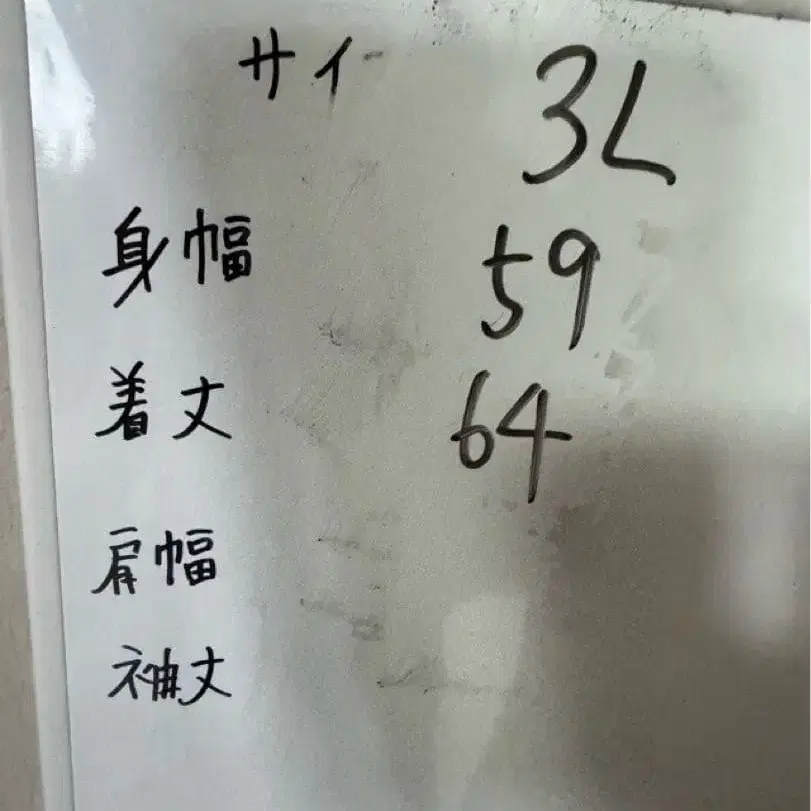 サイ 3L
身幅 59
着丈 64
肩幅
袖丈